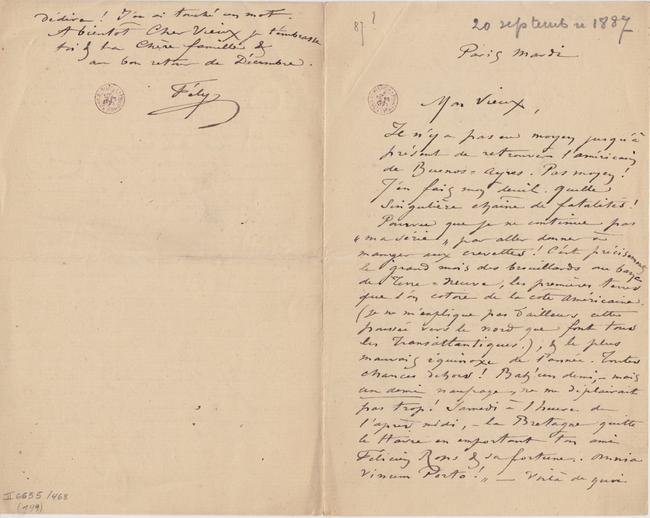 87
20 septembre 1887
Paris Mardi
Mon Vieux,
Il n'y a pas eu moyen jusqu'à
présent de retrouver l'américain
de Buenos-Ayres. Pas moyen!
J'en fais mon deuil. Quelle
singulière chaine de fatalités!
Pourvu que je ne continue pas
« ma série » par aller donner à
manger aux crevettes! C'est précisement
le grand mois des brouillards au banc
de Terre-Neuve, les premières terres
que l'on cotoie de la cote américaine.
(Je ne m'explique pas d'ailleurs cette
poussée vers le nord que font tous
les Transatlantiques.), & le plus
mauvais équinoxe de l'année. Toutes
chances dehors! Bah! un demi, – mais
un demi naufrage, ne me déplairait
pas trop! Samedi à l'heure de
l'après midi, – la Bretagne quitte
le Havre en emportant ton ami
Félicien Rops & sa fortune. Omnia
vinum Porto! » — Voilà de quoi
dédire! J'en ai touché un mot.
A bientot Cher Vieux je t'embrasse
toi & ta Chère famille &
au bon retour de Décembre.
Fély
II 6655/468
(199)